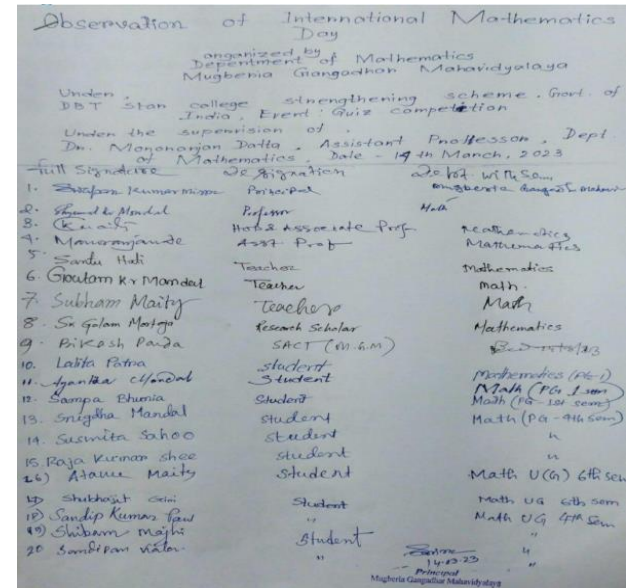 Observation of International Mathematics
Day
organized by
Depentment of Mathematics
Mugbenia Gangadhan Mahavidyalaya
Unden
DBT stan college strengthening scheme, Govt. of
India, Event Quiz competetion
Unden the supenvision of
Dn. Monohanjan Datta, Assistant Professon, Dept
of Mathematics. Date - 14th March, 2023
Full Signature Designation
1. Kumar Principal
2. Mondal Professor Math
3. HOD & Associate Prof. Mathematics
4. Asst. Prof Mathematics
5. Santu Hati Teacher Mathematics
6. Goutam Kr Mondal Teacher math.
7. Subham Maity Teacher Math
8. Sk Golam Mortoja Research Scholar Mathematics
9. Bikash Panda SACT (M.G.M)
10. Lalita Patra student Mathematics (PG-1)
11. Student Math (PG 1 sem)
12. Sampa Bhunia Student Math (PG-1st sem)
13. Snigdha Mandal student Math (PG-4th Sem)
14. Susmita Sahoo student "
15. Raja Kumar Shee student "
16) Maity Student Math U(G) 6th sem
Student Math UG 6th sem
18) Sandip Kumar " Math UG 4th Sem
19) Shibam Majhi Student "
20 " "
14-03-23
Principal
Mugberia Gangadhar Mahavidyalaya